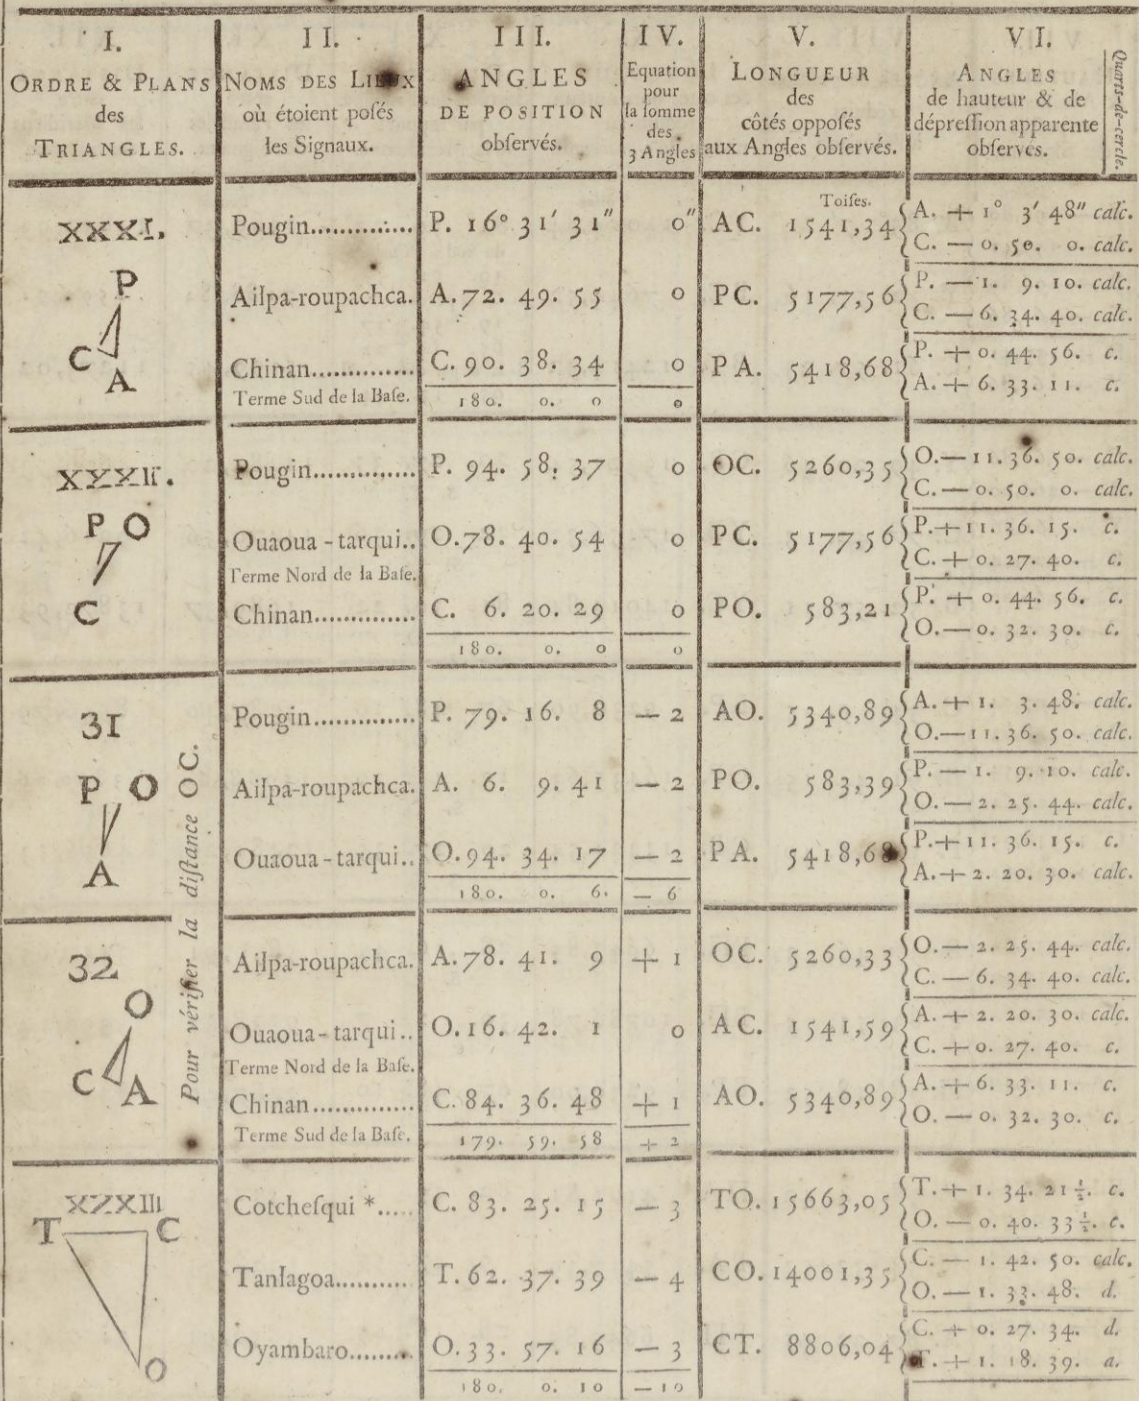 I. II. III. IV. V. VI.
ORDRE & PLANS des TRIANGLES.
NOMS DES LIEUX où étoient poſés les Signaux.
ANGLES DE POSITION obſervés.
Equation pour la ſomme des 3 Angles
LONGUEUR des côtés oppoſés aux Angles obſervés.
ANGLES de hauteur & de dépreſſion apparente obſervés.
Quarts-de-cercle.
XXXI.
P C A
Toiſes.
Pougin.............. P. 16° 31′ 31″ 0″ AC. 1541,34 { A. + 1° 3′ 48″ calc.
C. — 0. 50. 0. calc.
Ailpa-roupachca. A. 72. 49. 55 0 PC. 5177,56 { P. — 1. 9. 10. calc.
C. — 6. 34. 40. calc.
Chinan.............. C. 90. 38. 34 0 PA. 5418,68 { P. + 0. 44. 56. c.
A. + 6. 33. 11. c.
Terme Sud de la Baſe. 180. 0. 0 0
XXXII.
P O C
Pougin.............. P. 94. 58. 37 0 OC. 5260,35 { O. — 11. 36. 50. calc.
C. — 0. 50. 0. calc.
Ouaoua-tarqui.. O. 78. 40. 54 0 PC. 5177,56 { P. + 11. 36. 15. c.
Terme Nord de la Baſe. C. + 0. 27. 40. c.
Chinan.............. C. 6. 20. 29 0 PO. 583,21 { P. + 0. 44. 56. c.
O. — 0. 32. 30. c.
180. 0. 0 0
31
P O A
Pour vérifier la diſtance OC.
Pougin.............. P. 79. 16. 8 — 2 AO. 5340,89 { A. + 1. 3. 48. calc.
O. — 11. 36. 50. calc.
Ailpa-roupachca. A. 6. 9. 41 — 2 PO. 583,39 { P. — 1. 9. 10. calc.
O. — 2. 25. 44. calc.
Ouaoua-tarqui.. O. 94. 34. 17 — 2 PA. 5418,68 { P. + 11. 36. 15. c.
A. + 2. 20. 30. calc.
180. 0. 6. — 6
32
O C A
Ailpa-roupachca. A. 78. 41. 9 + 1 OC. 5260,33 { O. — 2. 25. 44. calc.
C. — 6. 34. 40. calc.
Ouaoua-tarqui.. O. 16. 42. 1 0 AC. 1541,59 { A. + 2. 20. 30. calc.
Terme Nord de la Baſe. C. + 0. 27. 40. c.
Chinan.............. C. 84. 36. 48 + 1 AO. 5340,89 { A. + 6. 33. 11. c.
O. — 0. 32. 30. c.
Terme Sud de la Baſe. 179. 59. 58 + 2
XXXIII
T C O
Cotcheſqui *..... C. 83. 25. 15 — 3 TO. 15663,05 { T. + 1. 34. 21 ½. c.
O. — 0. 40. 33 ½. c.
Tanlagoa........... T. 62. 37. 39 — 4 CO. 14001,35 { C. — 1. 42. 50. calc.
O. — 1. 33. 48. d.
Oyambaro......... O. 33. 57. 16 — 3 CT. 8806,04 { C. + 0. 27. 34. d.
T. + 1. 18. 39. a.
180. 0. 10 — 10